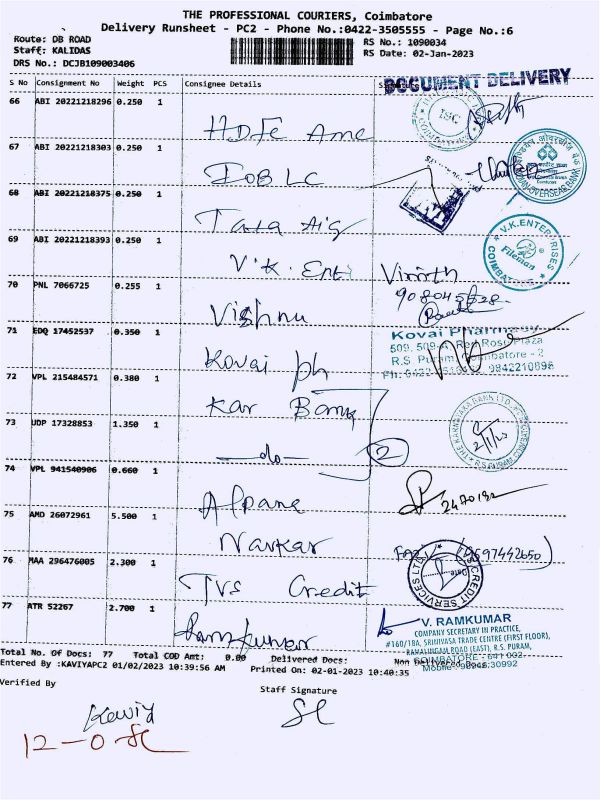 THE PROFESSIONAL COURIERS, Coimbatore
Delivery Runsheet - PC2 - Phone No.:0422-3505555 - Page No.:6
Route: DB ROAD
RS No.: 1090034
Staff: KALIDAS
RS Date: 02-Jan-2023
DRS No.: DCJB109003406
S No Consignment No Weight PCS Consignee Details
DOCUMENT DELIVERY
66 ABI 20221218296 0.250 1
HDFC Amc
ISC
67 ABI 20221218303 0.250 1
IOB LC
INDIAN OVERSEAS BANK
68 ABI 20221218375 0.250 1
Tata Aig
69 ABI 20221218393 0.250 1
V.K. Ent
V.K.ENTERPRISES
Fileman
COIMBATORE
70 PNL 7066725 0.255 1
Vishnu
71 EDQ 17452537 0.350 1
Kovai ph
Kovai Pharmacy
R.S. Puram, Coimbatore - 2
9842210898
72 VPL 215484571 0.380 1
Kar Bank
THE KARNATAKA BANK LTD.
R.S. PURAM
2/1/23
73 UDP 17328853 1.350 1
-do-
2
74 VPL 941540906 0.660 1
Alpane
75 AMD 26072961 5.500 1
Narkar
76 MAA 296476005 2.300 1
TVS Credit
TVS CREDIT SERVICES LTD
Date
77 ATR 52267 2.700 1
Ramkumar
V. RAMKUMAR
COMPANY SECRETARY IN PRACTICE,
#160/18A, SRINIVASA TRADE CENTRE (FIRST FLOOR),
RAMALINGAM ROAD (EAST), R.S. PURAM,
COIMBATORE - 641 002
Total No. Of Docs: 77 Total COD Amt: 0.00 Delivered Docs: Non Delivered Docs:
Entered By :KAVIYAPC2 01/02/2023 10:39:56 AM Printed On: 02-01-2023 10:40:35
Verified By
Staff Signature